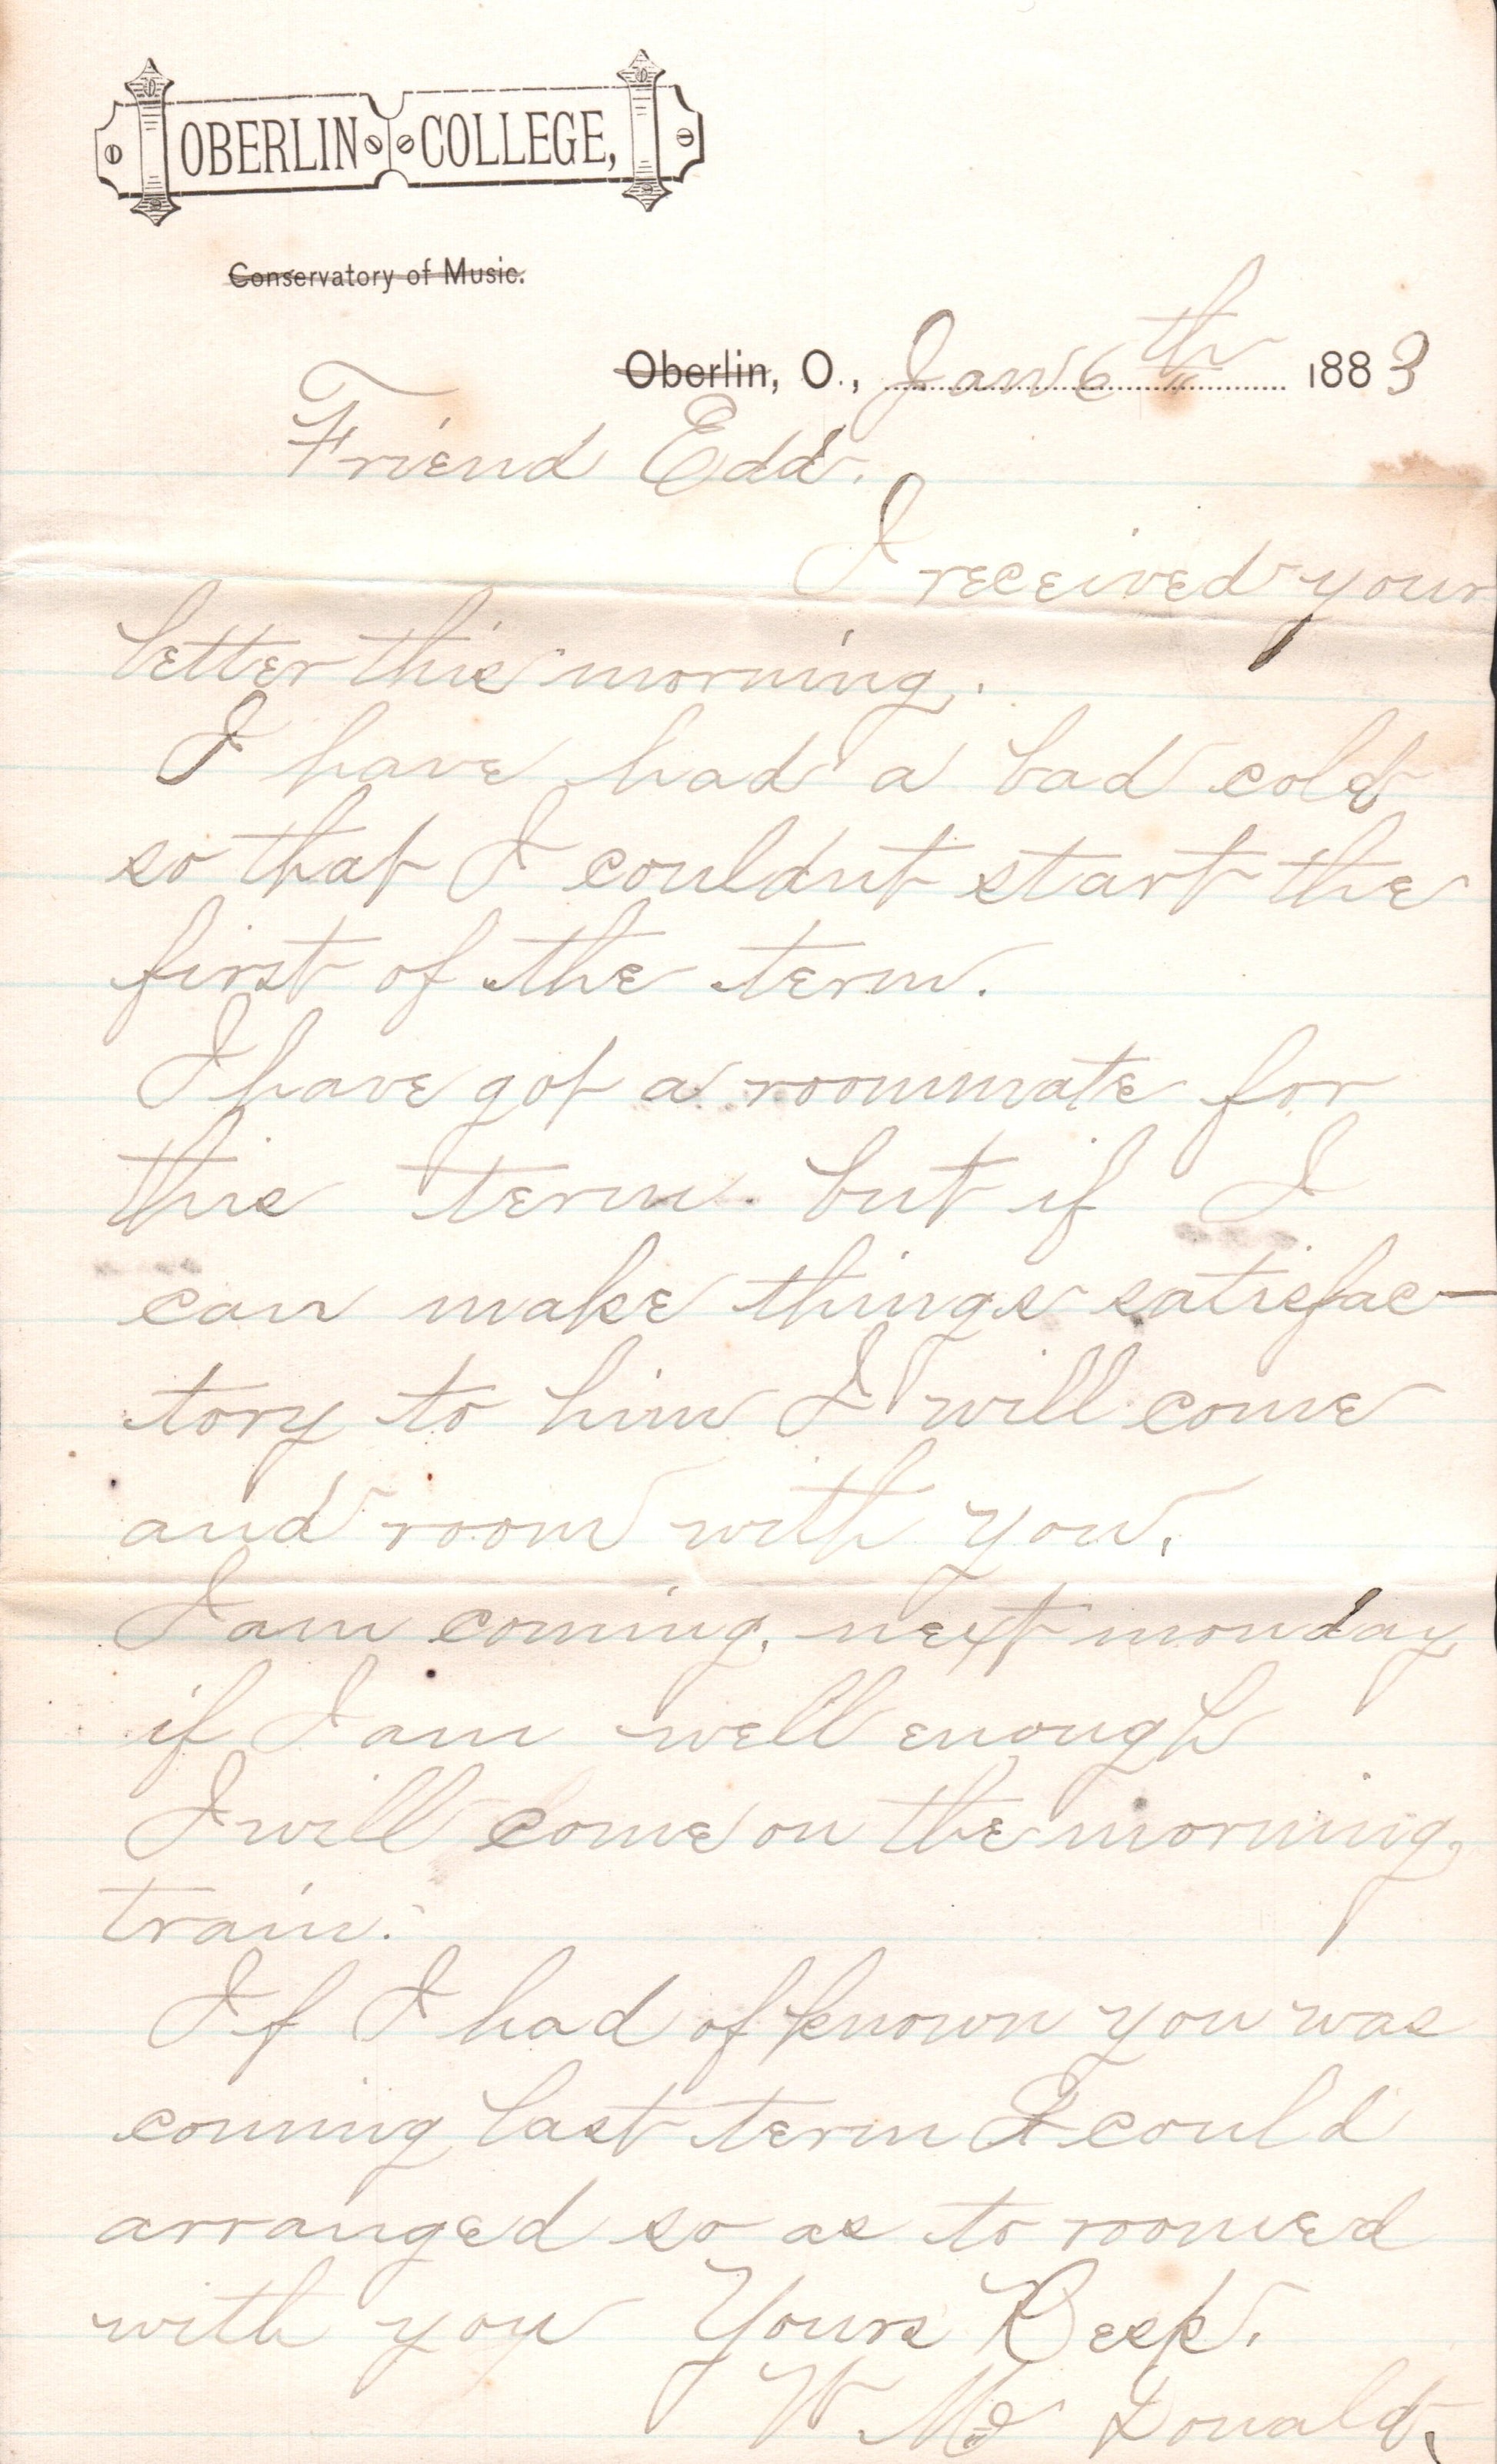 OBERLIN COLLEGE,
Conservatory of Music.
Oberlin, O., Jan 6th 1883
Friend Edd.
I received your
letter this morning.
I have had a bad cold
so that I couldnt start the
first of the term.
I have got a roommate for
this term. but if I
can make things satisfac-
tory to him I will come
and room with you.
I am coming next monday
if I am well enough
I will come on the morning
train.
If I had of known you was
coming last term I could
arranged so as to roomed
with you Yours Resp.
W. Mc Donald.